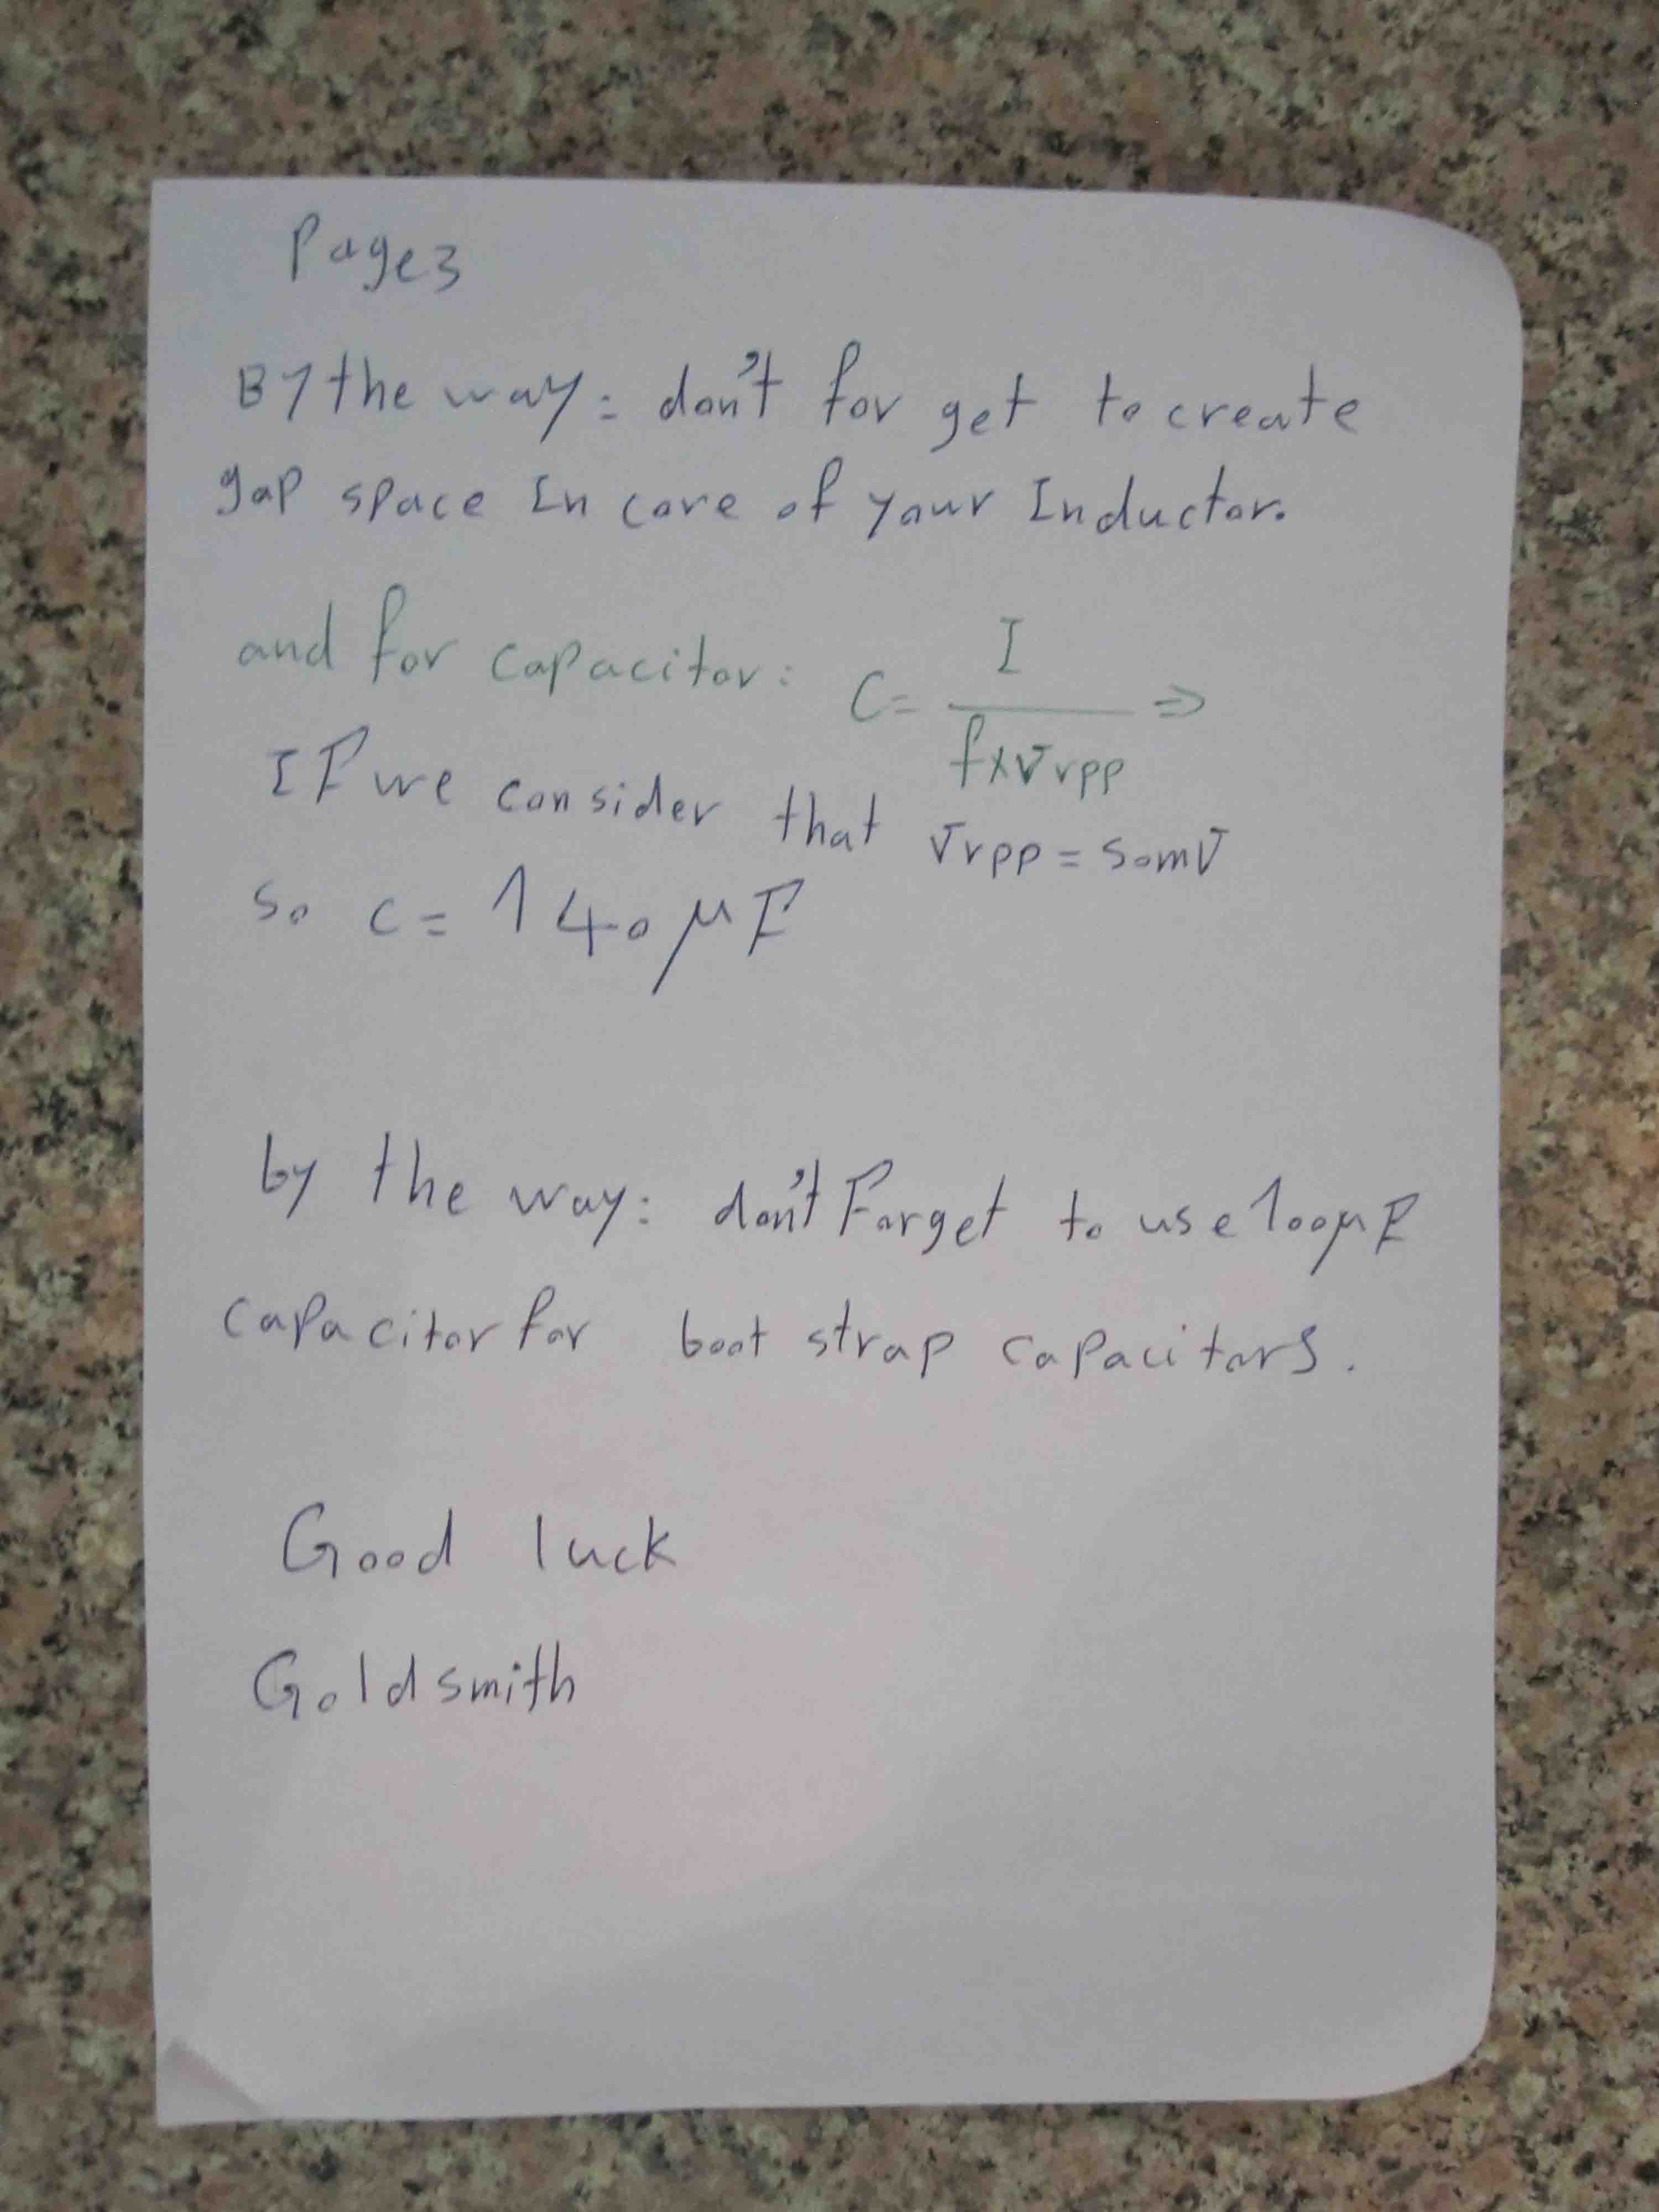 Page 3
By the way: don't for get to create
gap space In core of your Inductor.
and for capacitor: C = I / f×Vrpp ⇒
IF we consider that Vrpp = 50mV
So C = 140μF
by the way: don't Forget to use 100μF
capacitor for boot strap capacitors.
Good luck
Goldsmith